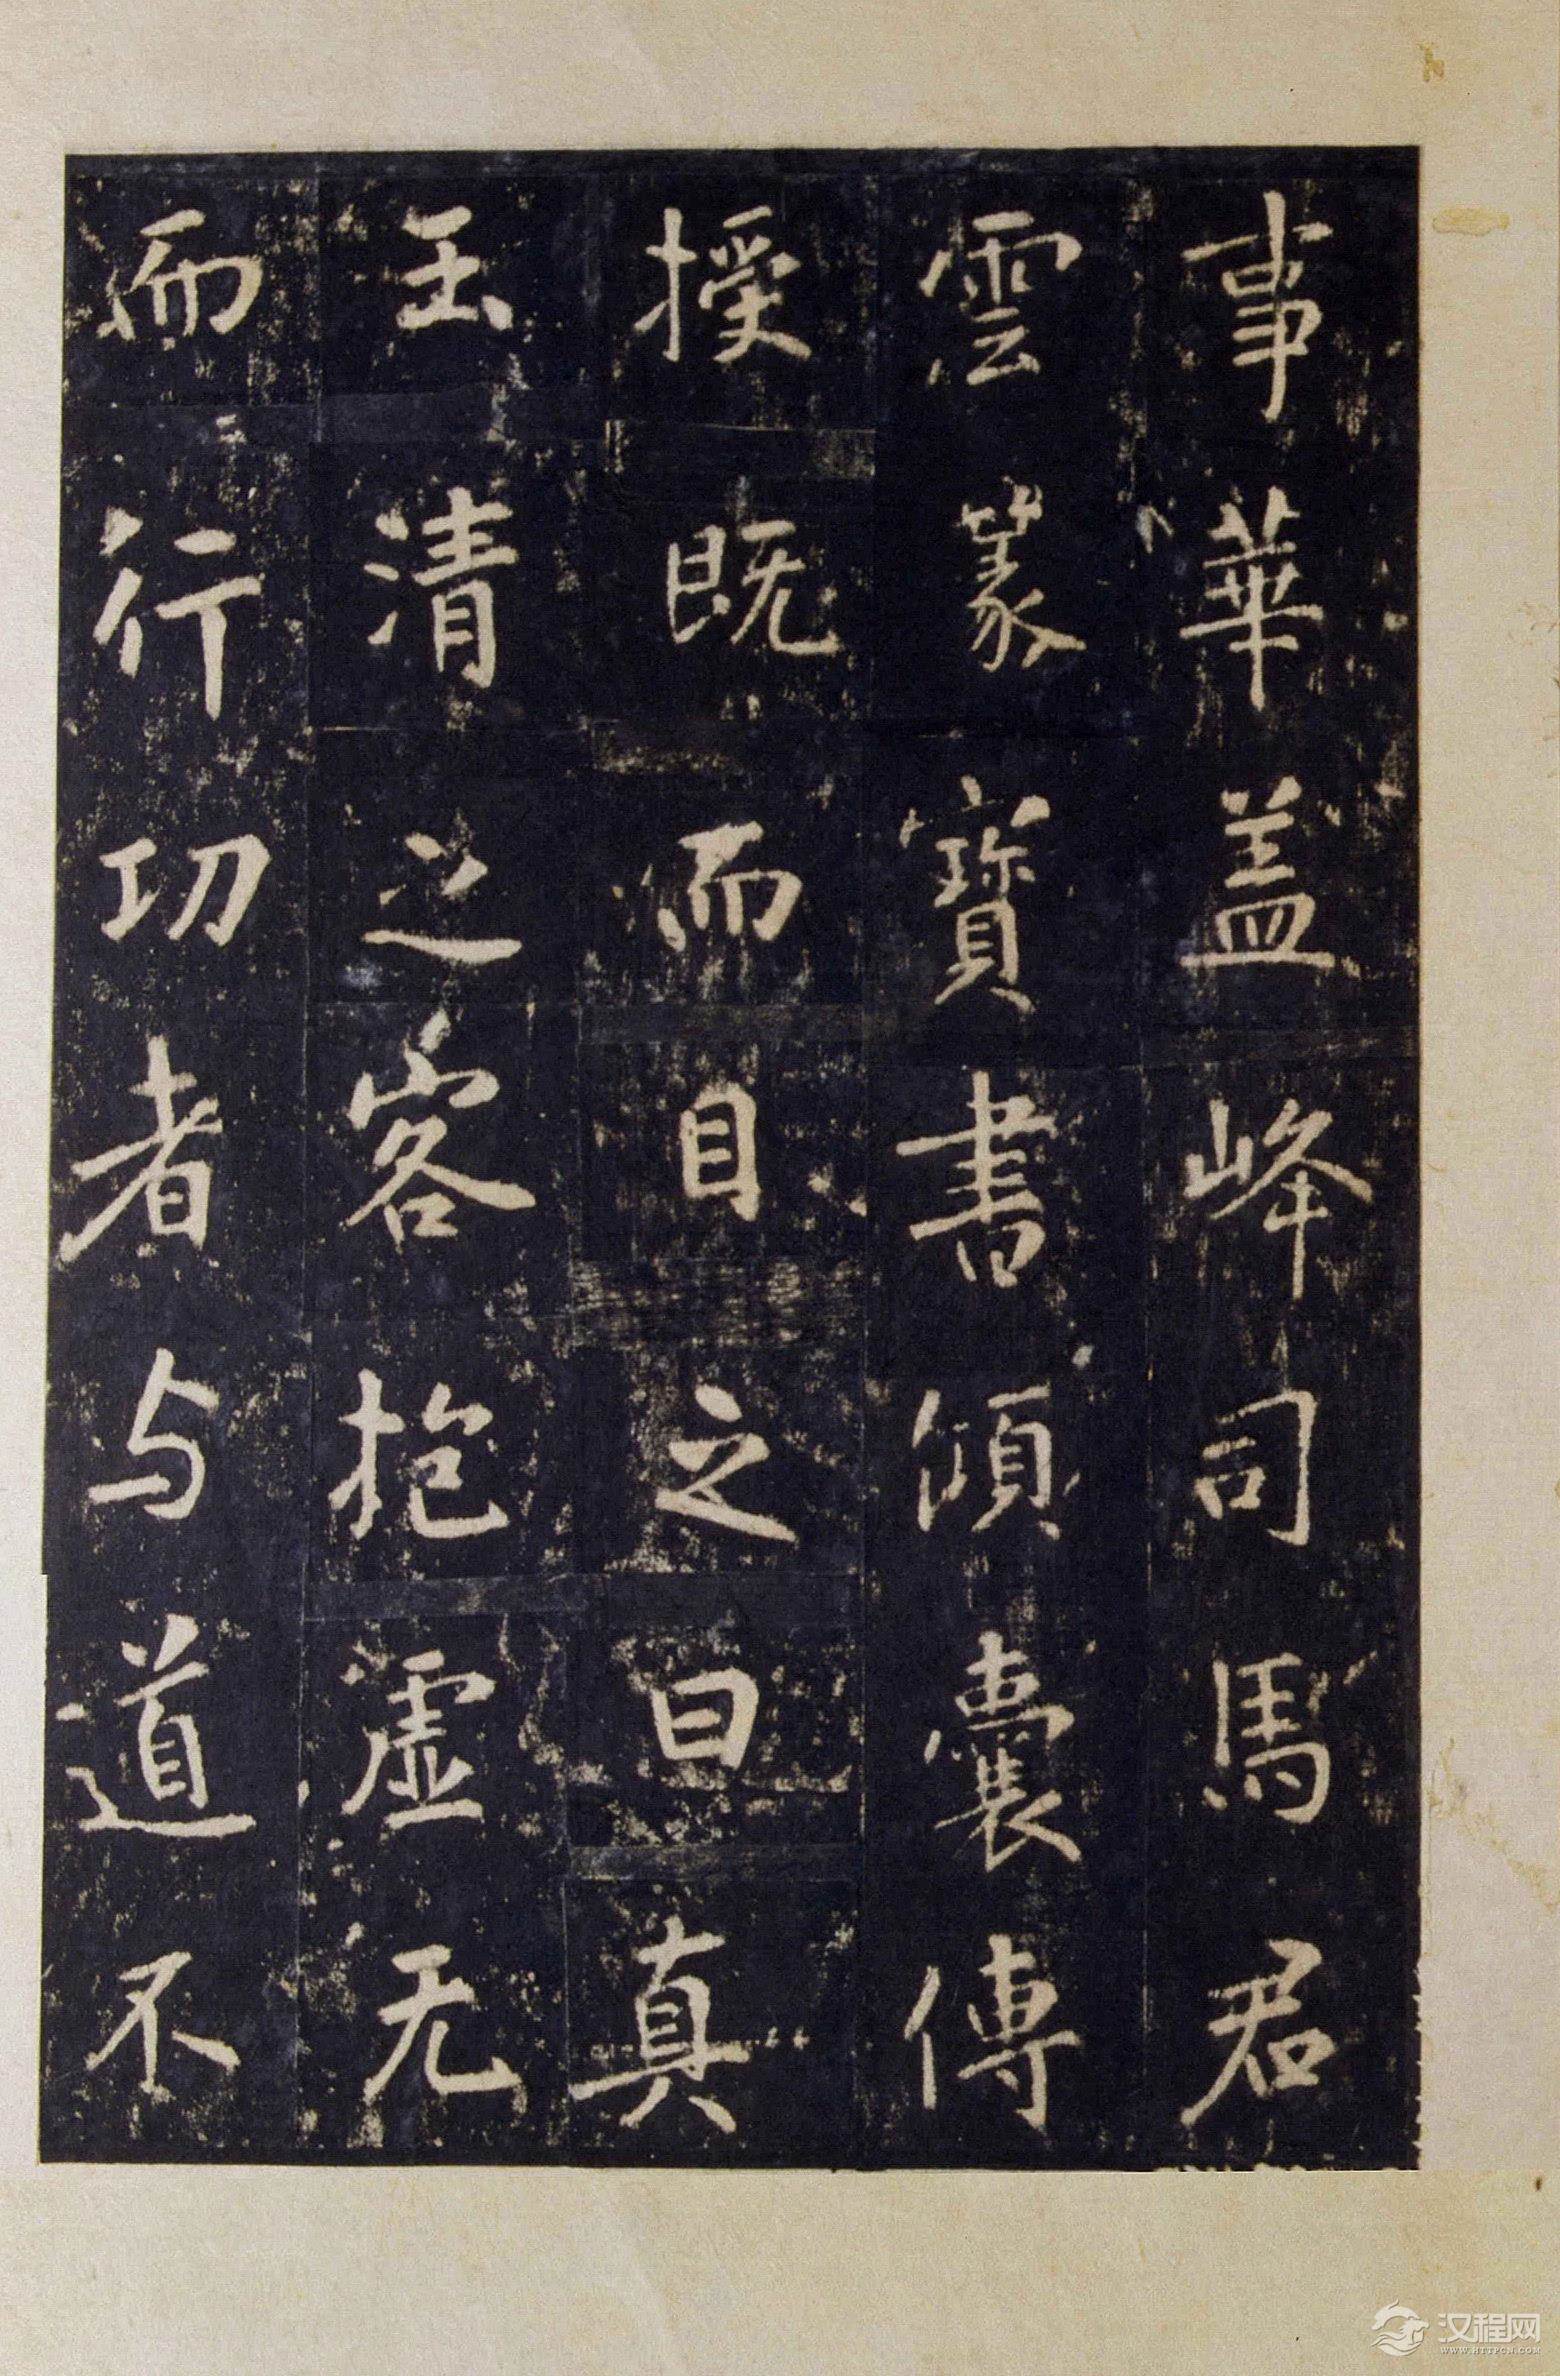 事華盖峰司馬君
雲篆寳書傾囊傳
授既而目之曰真
玉清之客抱虚无
而行功者与道不
汉程网
WWW.HTTPCN.COM